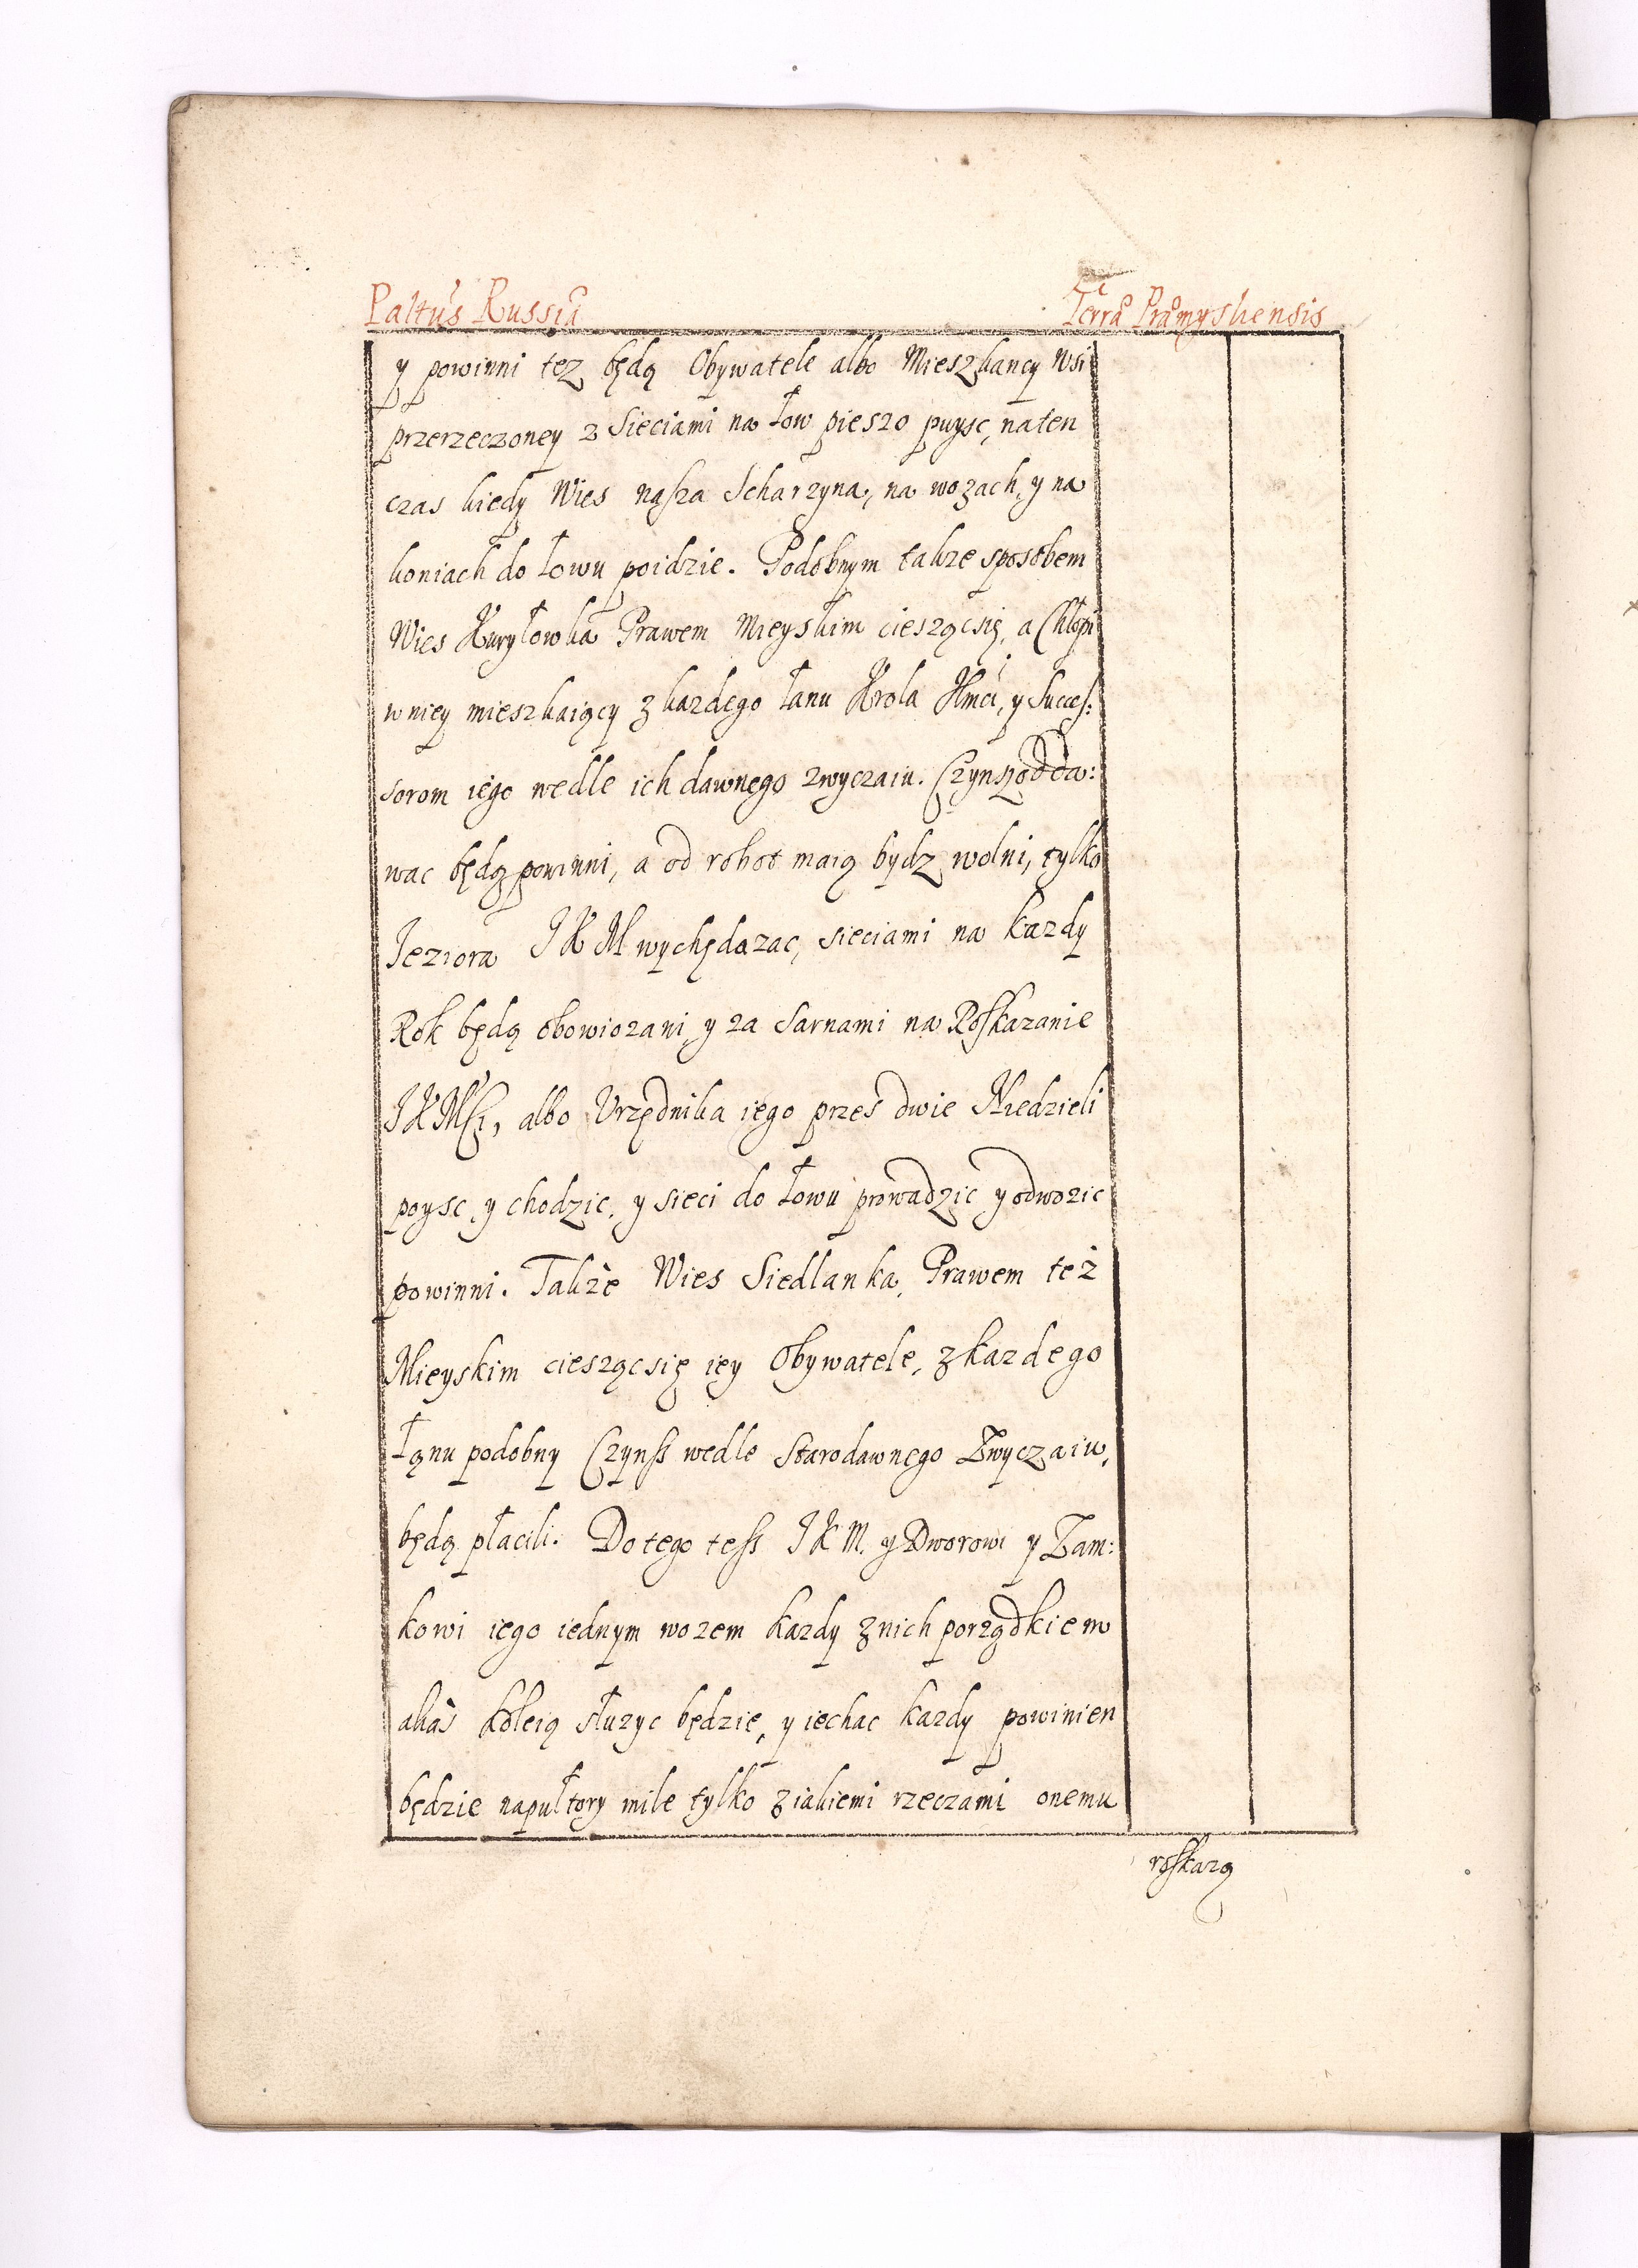 Paltus Russiæ
Terra Præmysliensis
y powinni tez będą Obywatele albo Mieszkancy Wsi
przerzeczoney z Sieciami na łow pieszo puysc, na ten
czas kiedy Wies nasza Scharzyna, na wozach, y na
koniach do łowu poidzie. Podobnym takze sposobem
Wies Kuryłowka Prawem Mieyskim cieszącsię, a Chłopi
w niey mieszkaiący z kazdego łanu Krola Jmci, y Succes:
sorom iego wedle ich dawnego zwyczaiu. Czynsz odda:
wac będą powinni, a od robot maią bydz wolni, tylko
Jeziora J K M wychędozac, sieciami na kazdy
Rok będą obowiozani, y za Sarnami na Roskazanie
J K Mści, albo Urzędnika iego przes dwie Niedzieli
poysc, y chodzic, y sieci do łowu prowadzic y odwozic
powinni. Takze Wies Siedlanka, Prawem też
Mieyskim cieszącsię iey Obywatele, z kazdego
łanu podobny Czynss wedle Starodawnego Zwyczaiu,
będą płacili. Do tego tess J K M. y Dworowi y Zam:
kowi iego iednym wozem kazdy z nich porządkiem
alias koleią słuzyc będzie, y iechac kazdy powinien
będzie na pułtory mile tylko z iakiemi rzeczami onemu
roskazą